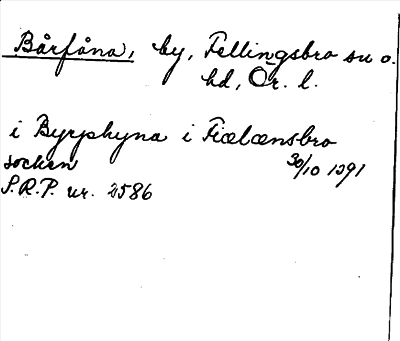 Bårfåna, by, Fellingsbro sn o.
hd, Ör. l.
i Byrphyna i Fiælænsbro
socken 30/10 1391
S.R.P. nr. 2586